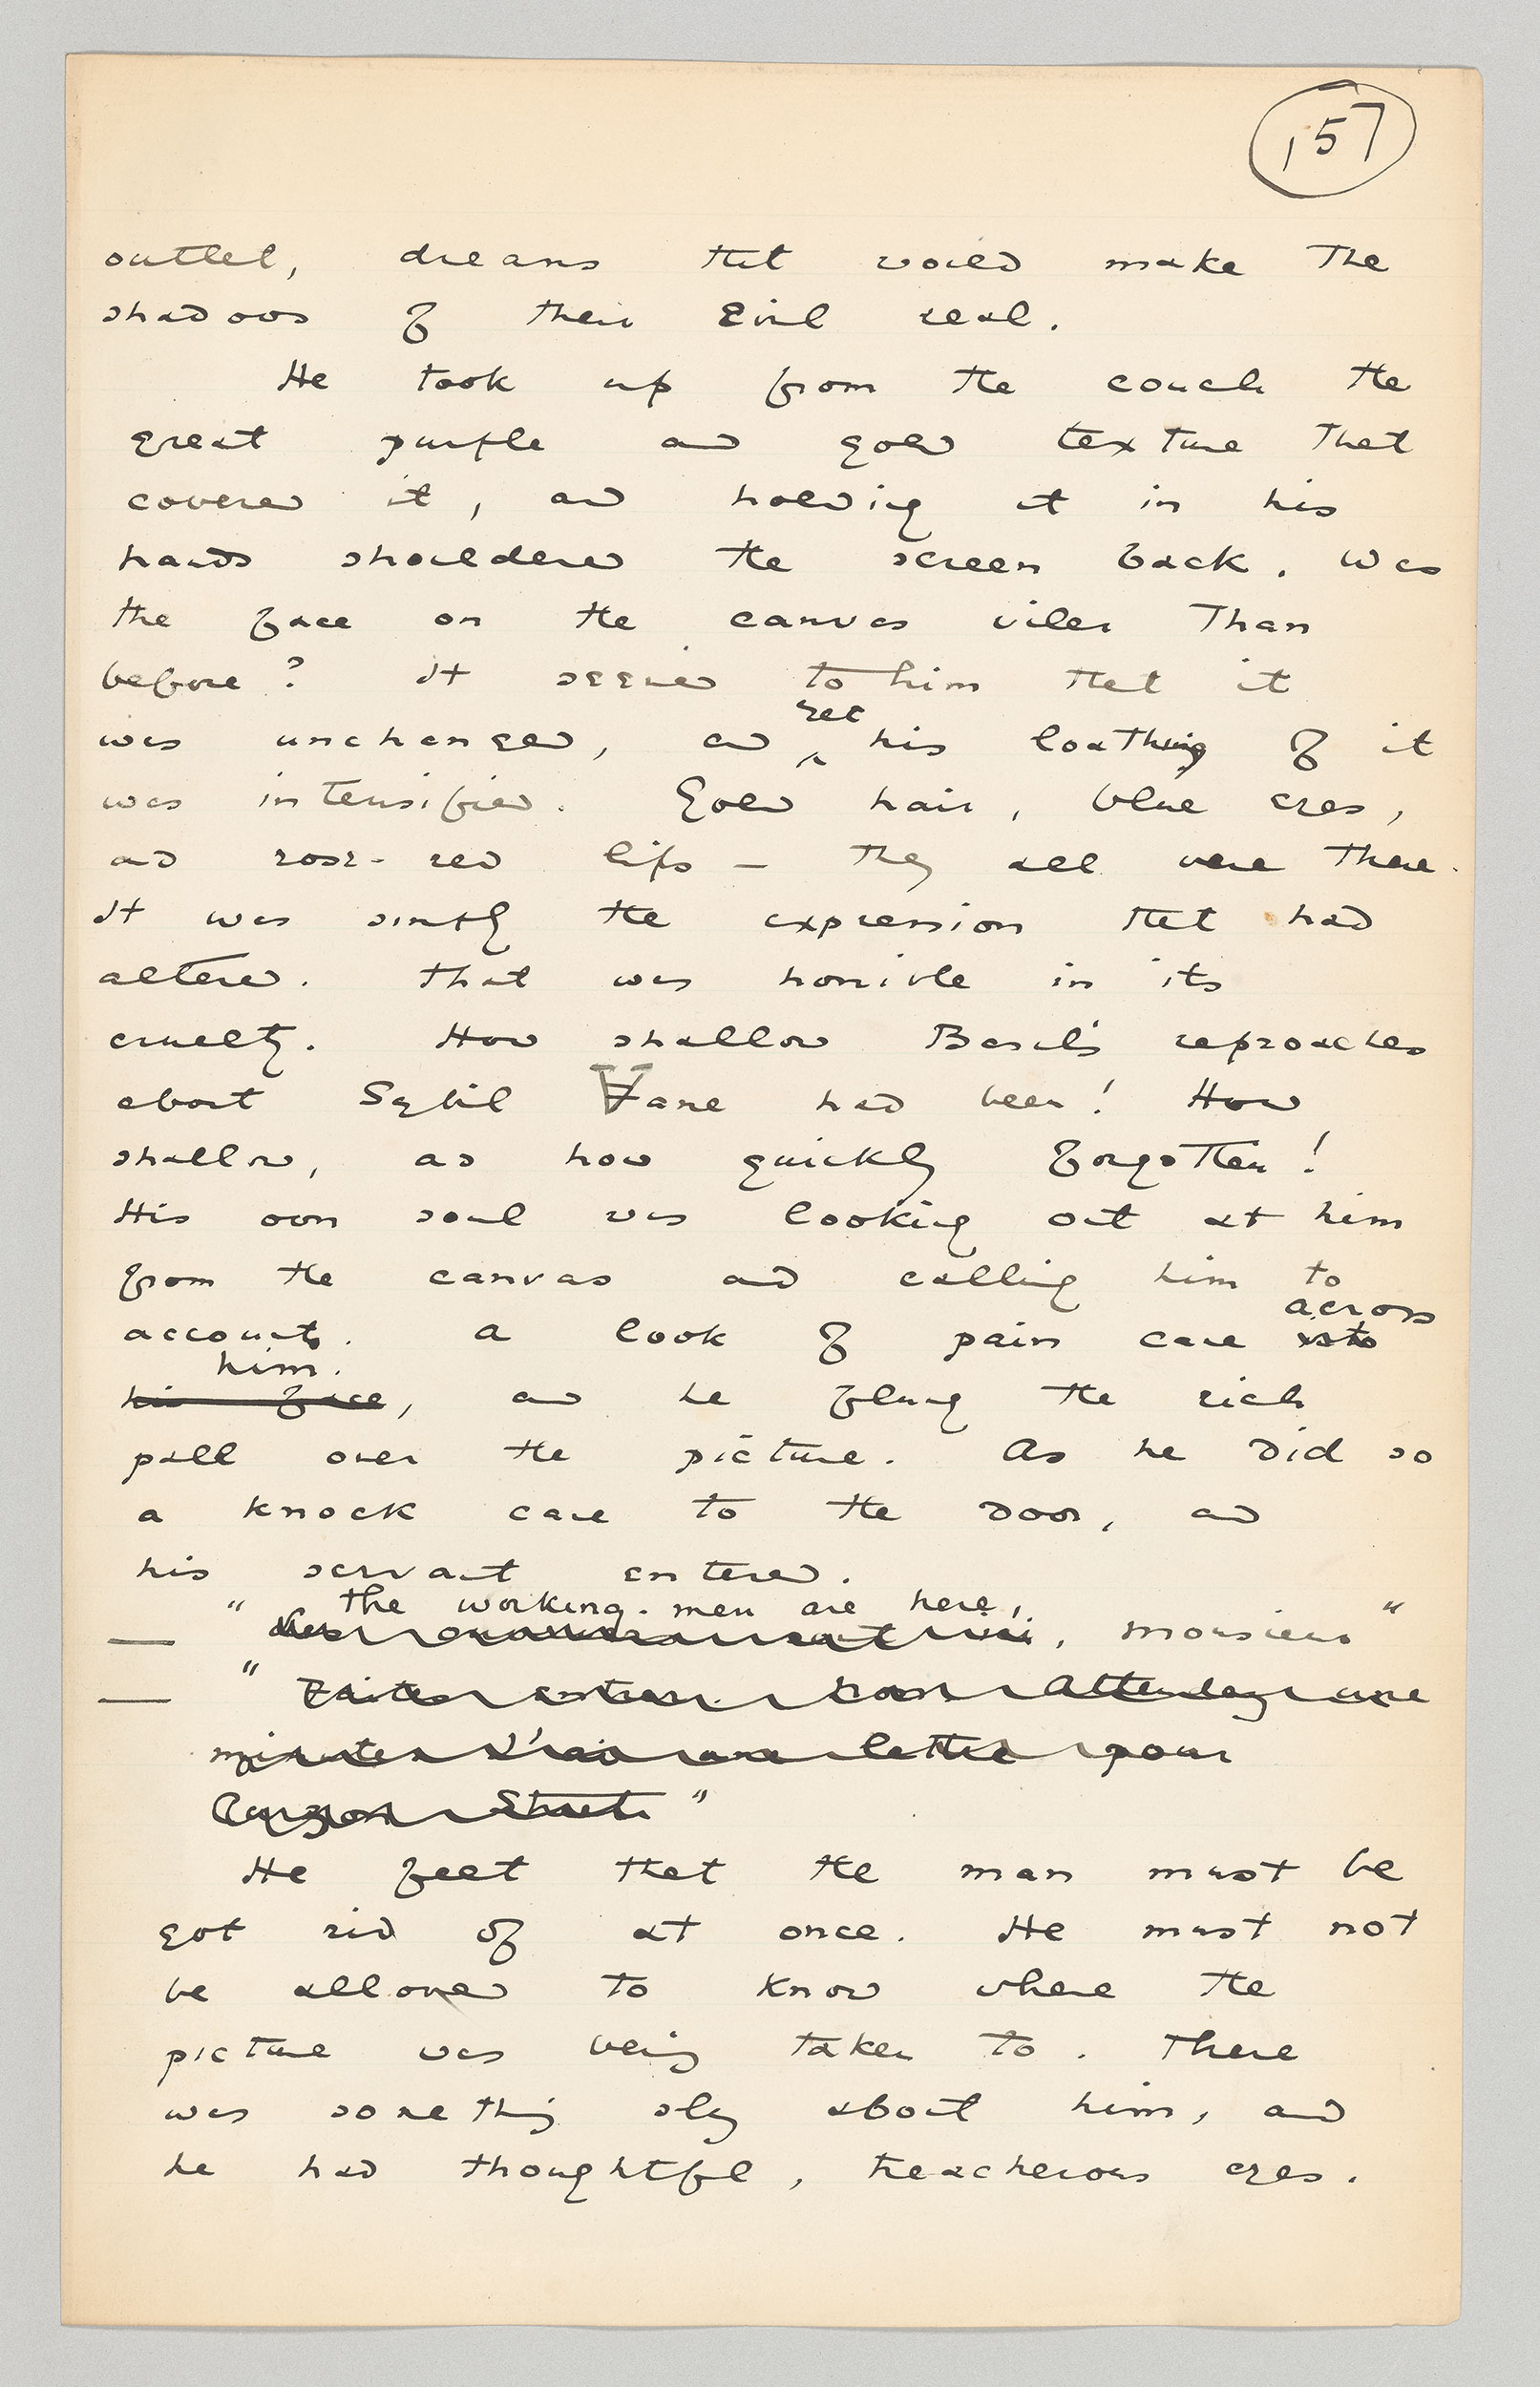 157
outlet, dreams that would make the
shadows of their evil real.
He took up from the couch the
great purple and gold texture that
covered it, and holding it in his
hands shouldered the screen back. Was
the face on the canvas viler than
before? It seemed to him that it
yet
was unchanged, and his loathing of it
was intensified. Gold hair, blue eyes,
and rose-red lips — they all were there.
It was simply the expression that had
altered. That was horrible in its
cruelty. How shallow Basil's reproaches
about Sybil Vane had been! How
shallow, and how quickly forgotten!
His own soul was looking out at him
from the canvas and calling him to
across
account. A look of pain came into
him.
his face, and he flung the rich
pall over the picture. As he did so
a knock came to the door, and
his servant entered.
" The working-men are here,
, monsieur"
" Faites entrer. Attendez une
minute. J'ai une lettre pour
Curzon Street "
He felt that the man must be
got rid of at once. He must not
be allowed to know where the
picture was being taken to. There
was something sly about him, and
he had thoughtful, treacherous eyes.